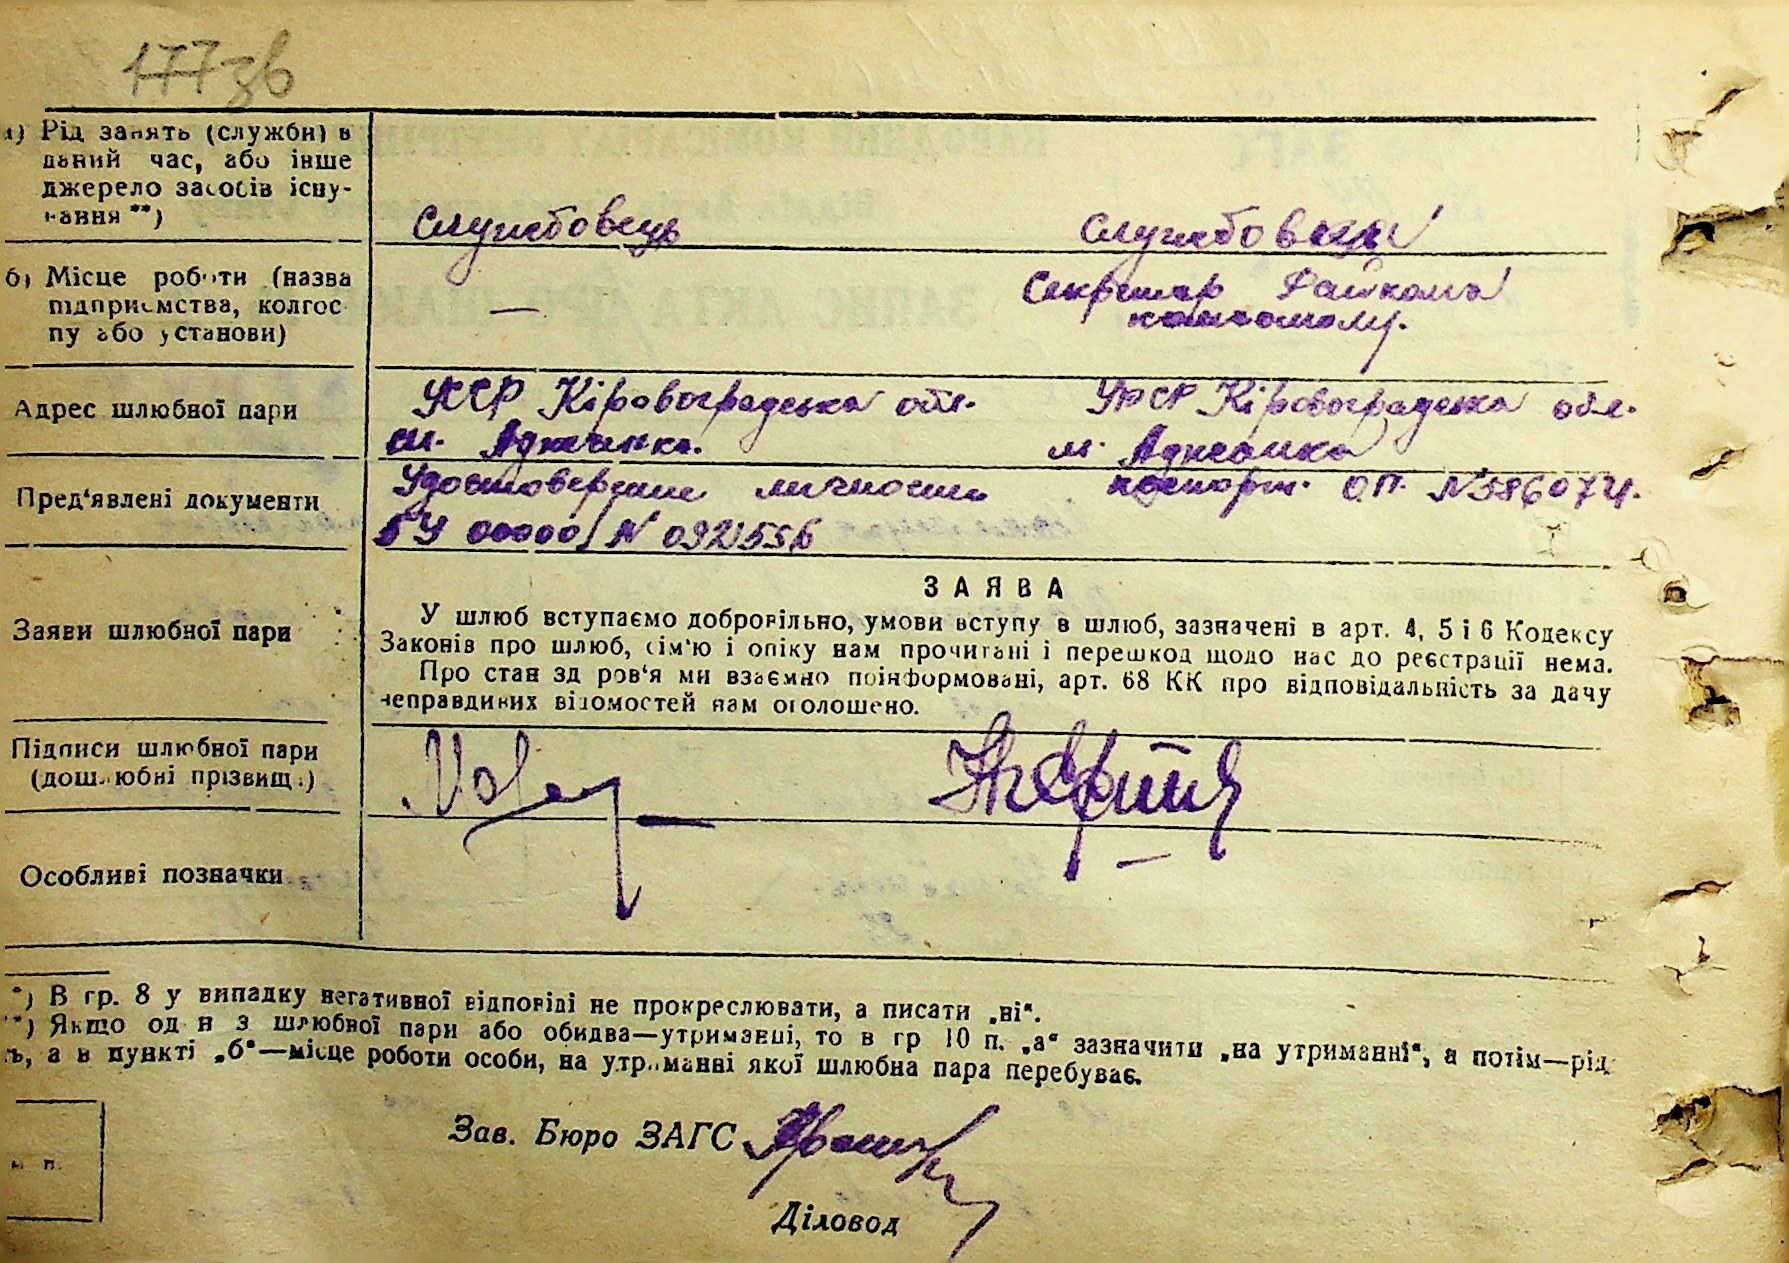 177зв
а) Рід занять (служби) в
даний час, або інше
джерело засобів існу-
вання **)
Службовець
Службовець
б) Місце роботи (назва
підприємства, колгос
пу або установи)
—
Секретар Райкома
комсомолу.
Адрес шлюбної пари
УССР Кіровоградська обл.
м. Аджамка.
УРСР Кіровоградська обл.
м. Аджамка
Пред'явлені документи
Удостоверение личности
N 0921556
паспорт. ОП. N586074.
ЗАЯВА
Заяви шлюбної пари
У шлюб вступаємо добровільно, умови вступу в шлюб, зазначені в арт. 4, 5 і 6 Кодексу
Законів про шлюб, сім'ю і опіку нам прочитані і перешкод щодо нас до реєстрації нема.
Про стан здоров'я ми взаємно поінформовані, арт. 68 КК про відповідальність за дачу
неправдивих відомостей нам оголошено.
Підписи шлюбної пари
(дошлюбні прізвища)
Особливі позначки
*) В гр. 8 у випадку негативної відповіді не прокреслювати, а писати „ні“.
**) Якщо один з шлюбної пари або обидва—утриманці, то в гр 10 п. „а“ зазначити „на утриманні“, а потім—рід
ь, а в пункті „б“—місце роботи особи, на утриманні якої шлюбна пара перебуває.
Зав. Бюро ЗАГС
м. п.
Діловод